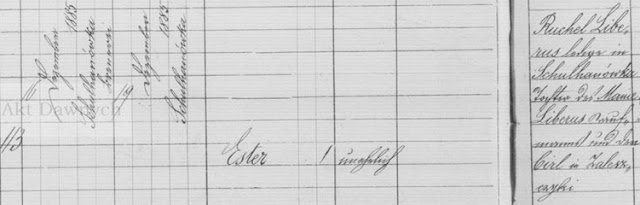 Dezember 1885
Schulhanówka
Dezember 1885
Schulhanówka
Akt Dawnych
Ester 1 unehelich
Ruchel Libe-
rus ledige in
Schulhanówka
Tochter des Mane
Liberus
und den
Cirl in Zalesz-
czyki